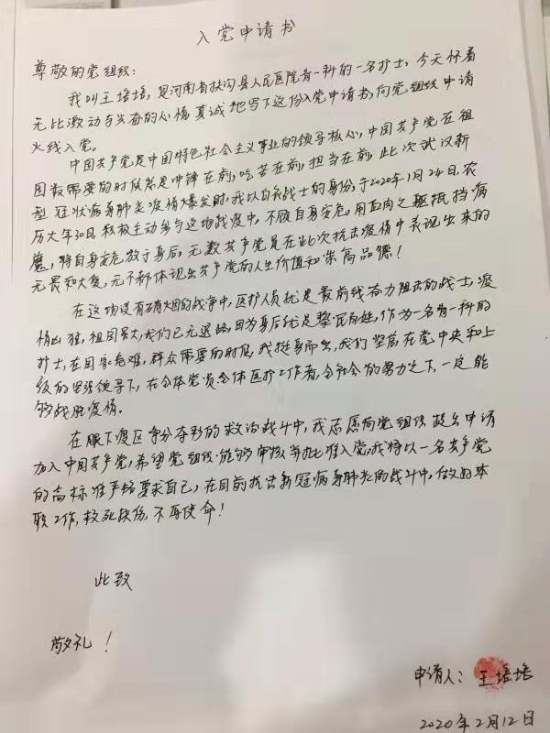 入党申请书
尊敬的党组织：
我叫王培培，是河南省扶沟县人民医院骨一科的一名护士，今天怀着
无比激动与兴奋的心情真诚地写下这份入党申请书，向党组织申请
火线入党。
中国共产党是中国特色社会主义事业的领导核心，中国共产党在祖
国最需要的时候总是冲锋在前，吃苦在前，担当在前，此次武汉新
型冠状病毒肺炎疫情爆发时，我以白衣战士的身份于2020年1月24日，农
历大年30日积极主动参与这场战疫中，不顾自身安危，用血肉之躯抵挡病
魔，将自身安危放于身后，无数共产党员在此次抗击疫情中表现出来的
无畏和大爱，无不都体现出共产党的人生价值和崇高品德！
在这场没有硝烟的战争中，医护人员就是最前线奋力阻击的战士，疫
情凶猛，祖国虽大，我们已无退路，因为身后就是黎民百姓，作为一名骨一科的
护士，在国家危难，群众需要的时候，我挺身而出，我们坚信在党中央和上
级的坚强领导下，在全体党员全体医护工作者，全社会的努力之下，一定能
够战胜疫情。
在眼下疫区争分夺秒的救治战斗中，我志愿向党组织提出申请
加入中国共产党，希望党组织能够审核并批准入党，我将以一名共产党
的高标准严格要求自己，在目前抗击新冠病毒肺炎的战斗中，做好本
职工作，救死扶伤，不辱使命！
此致
敬礼！
申请人：王培培
2020年2月12日